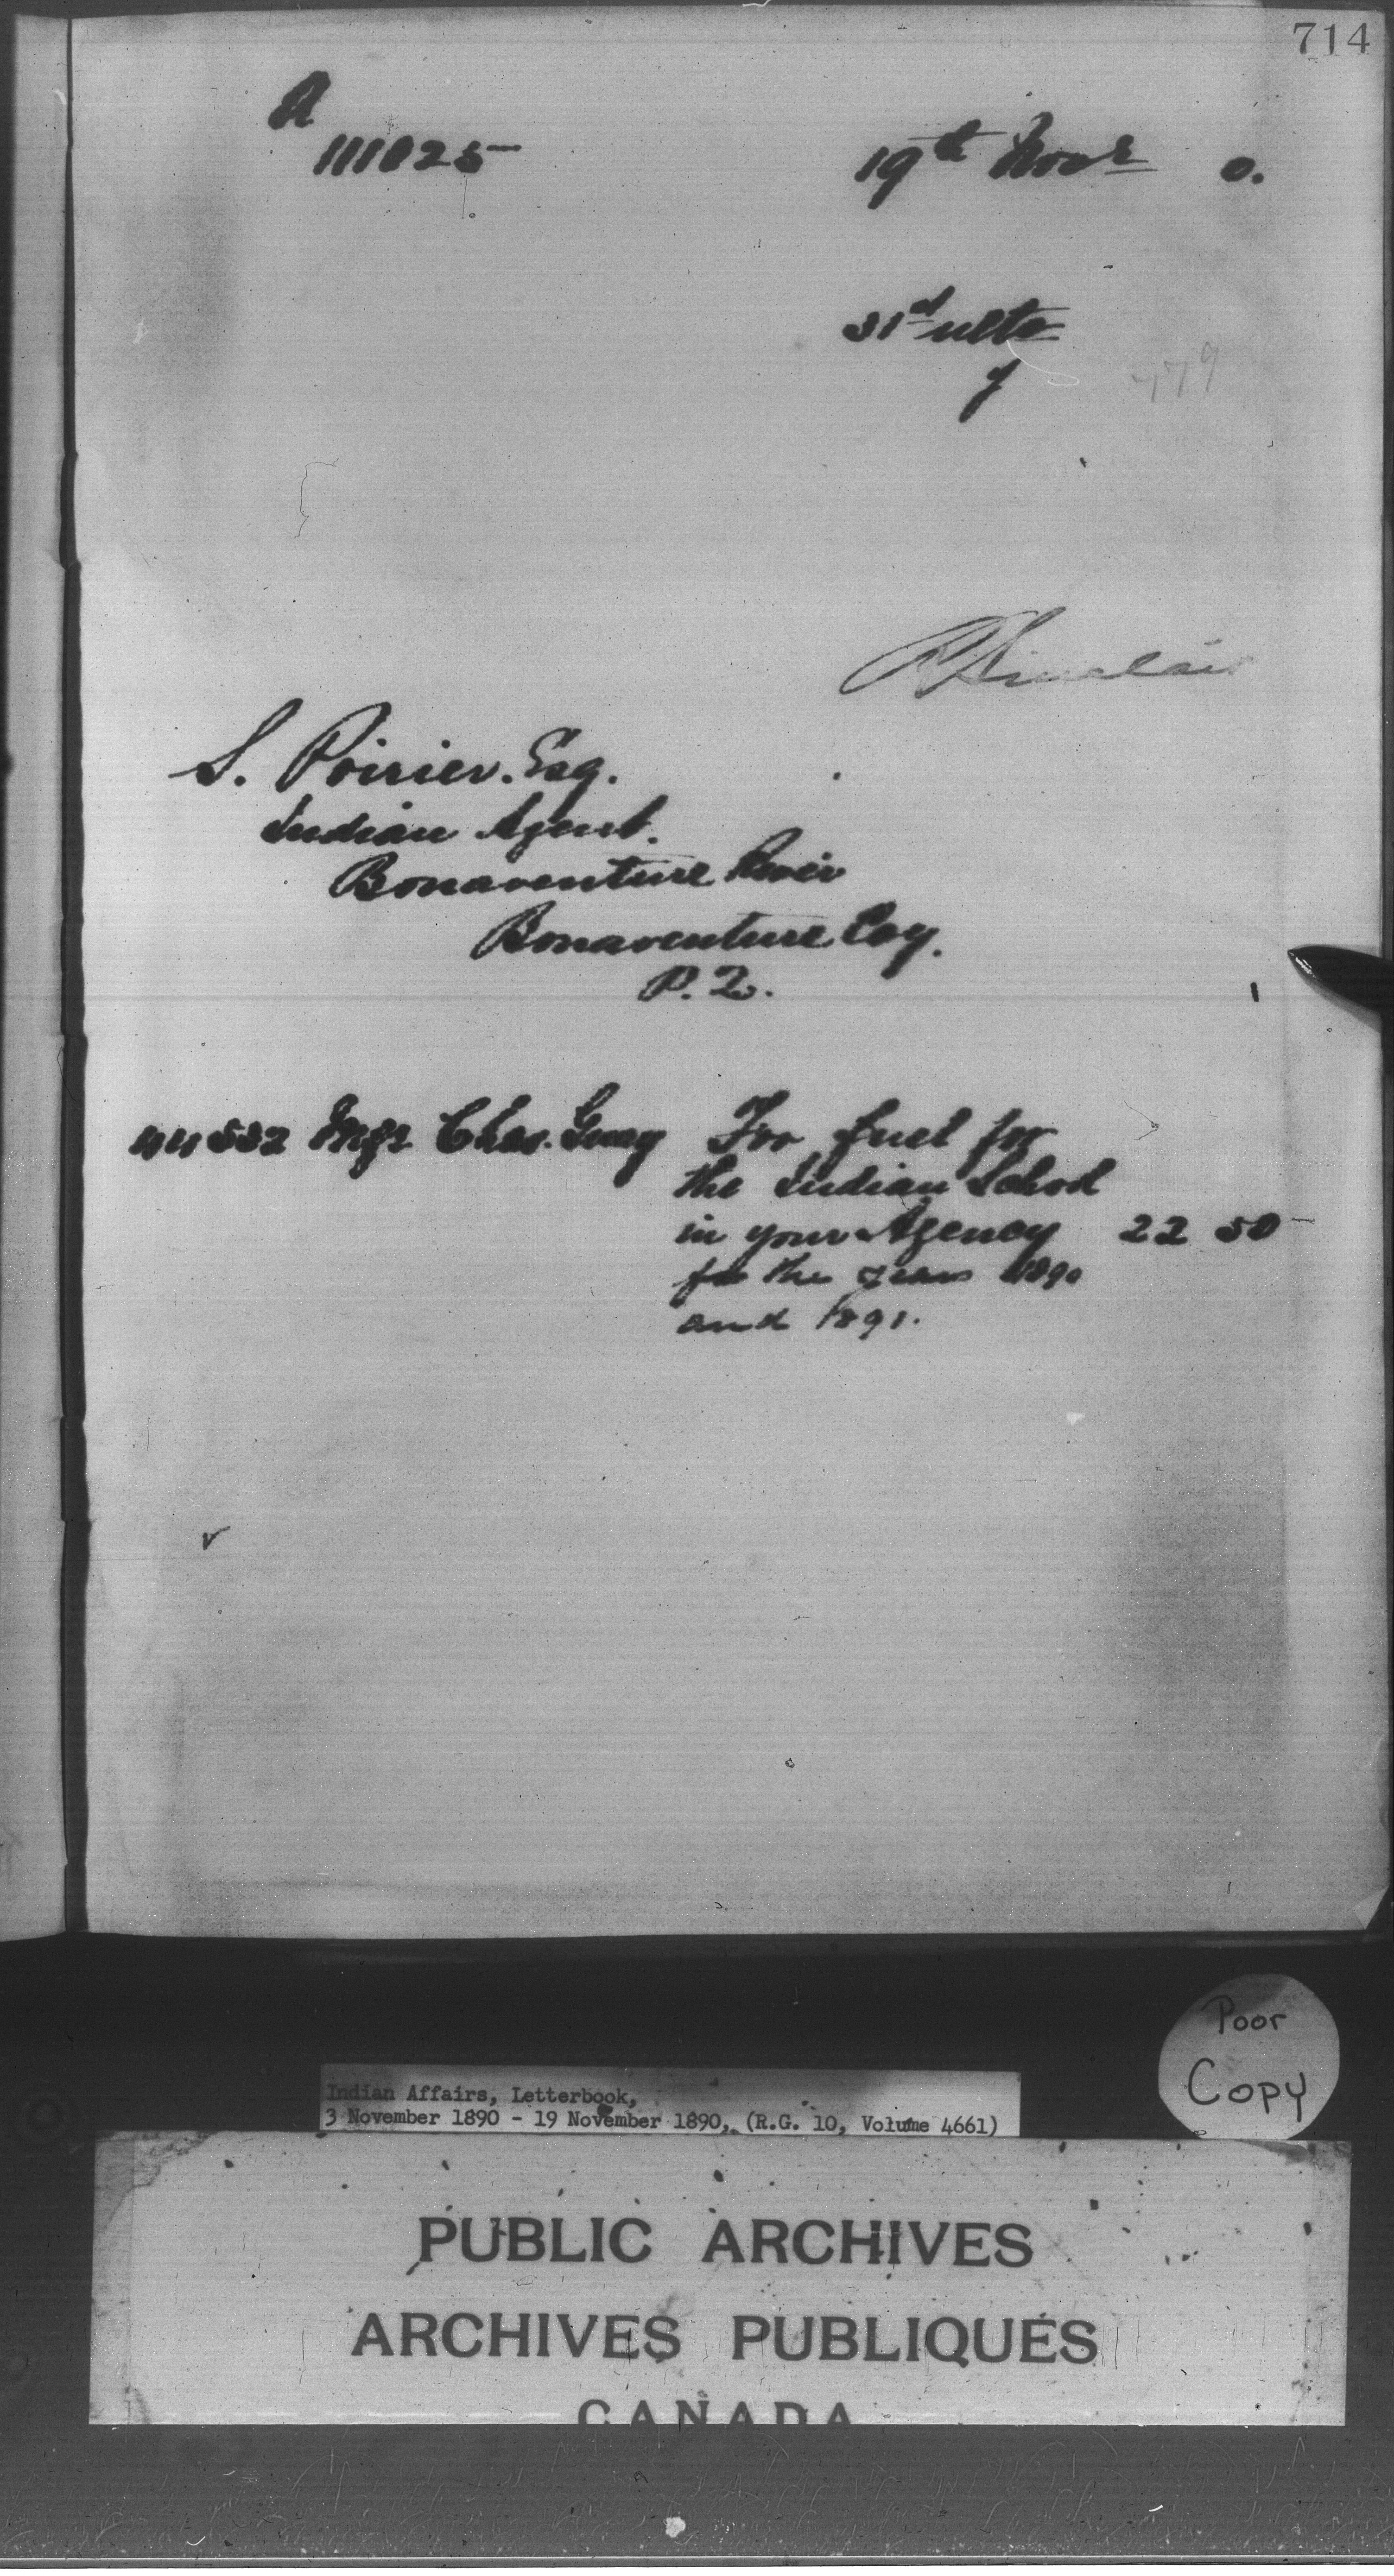 714
A
111025
19th Novr 0.
31st ulto
f
779
R Sinclair
S. Poirier. Esq.
Indian Agent.
Bonaventure River
Bonaventure Coy.
P. Q.
44532 Mgr Chas. Guay For fuel for
the Indian School
in your Agency 22 50
for the years 1890
and 1891.
Poor
Copy
Indian Affairs, Letterbook,
3 November 1890 - 19 November 1890, (R.G. 10, Volume 4661)
PUBLIC ARCHIVES
ARCHIVES PUBLIQUES
CANADA